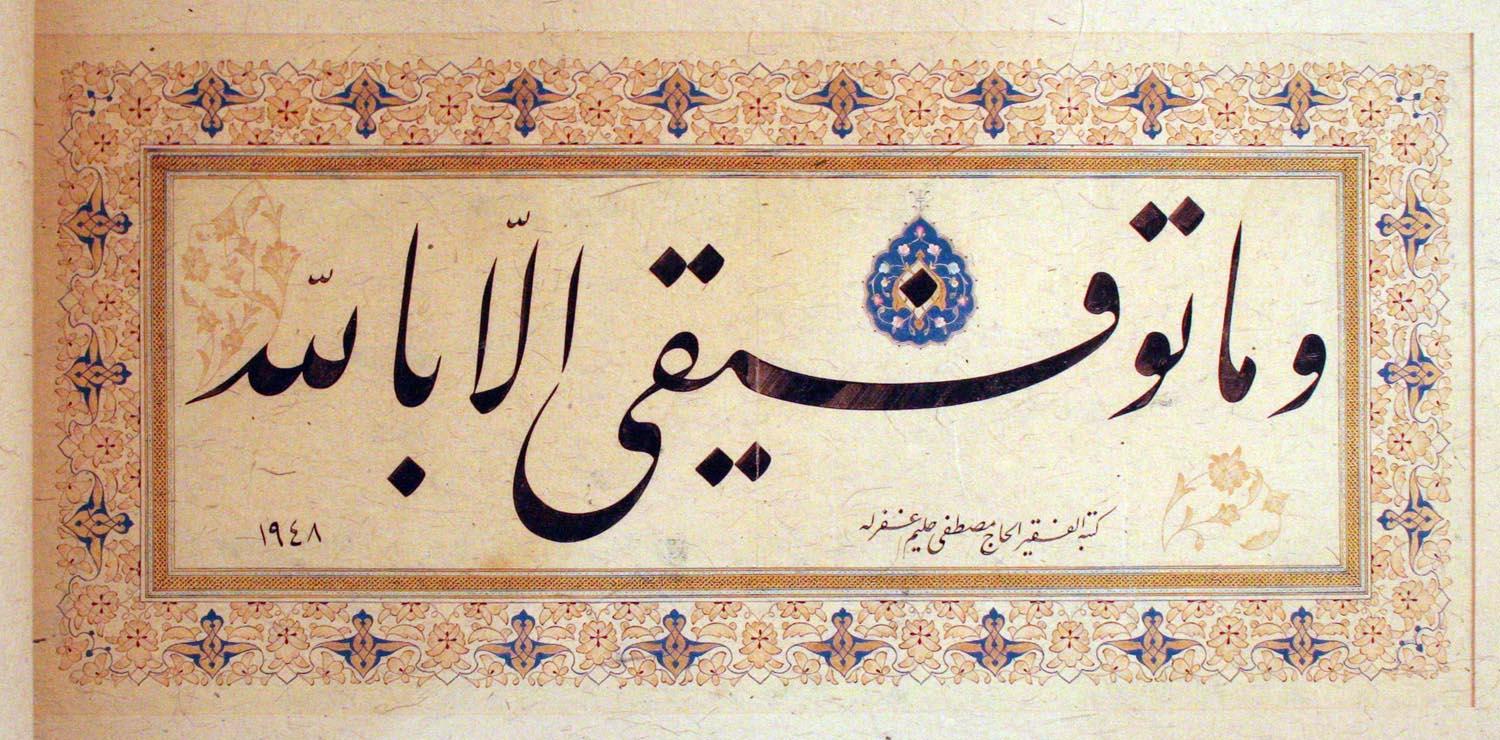 وما توفيقى الّا باللّه
كتبه الفقير الحاج مصطفى حليم غفرله
١٩٤٨